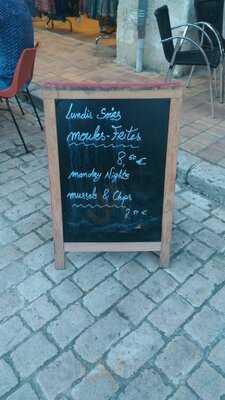 Lundis Soirs
moules-Frites
8 50 €
monday Nights
mussels & Chips